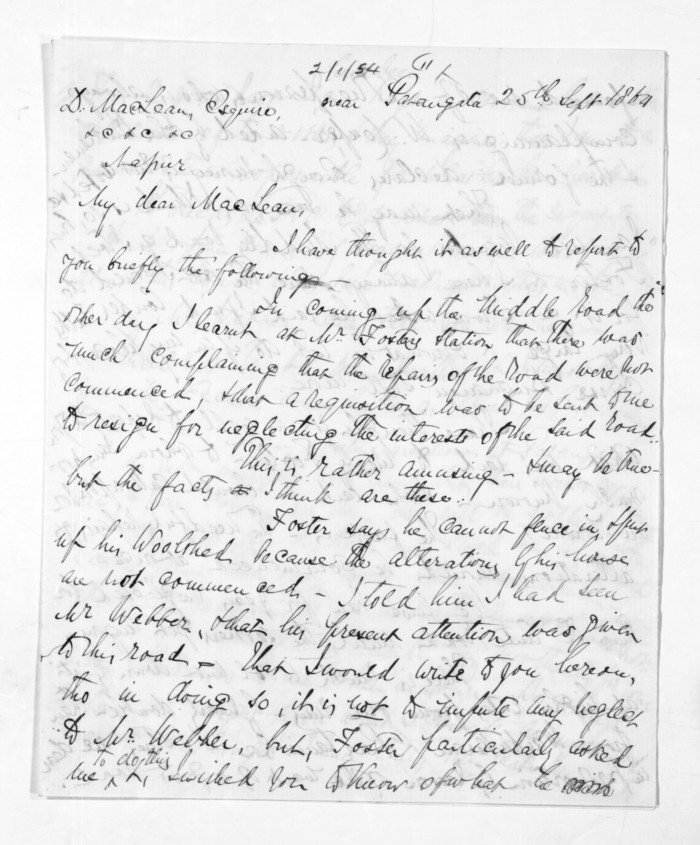 2/1/54
near Patangata 25th Sept 1864
D. MacLean, Esquire,
&c &c &c
Napier
My dear MacLean,
I have thought it as well to report to
you briefly the following —
In coming up the Middle Road the
other day I learnt at Mr. Fosters Station that there was
much complaining that the repairs of the Road were not
commenced, & that a requisition was to be sent to me
to resign for neglecting the interests of the said Road..
This is rather amusing — & may be true —
but the facts I think are these..
Foster says he cannot fence in, or put
up his Woolshed because the alterations of his house
are not commenced — I told him I had seen
Mr Webber, & that his present attention was given
to this road — That I would write to you hereon,
tho in doing so, it is not to impute any neglect
to Mr. Webber, but, Foster particularly asked
me to do this, & wished you to know of what he